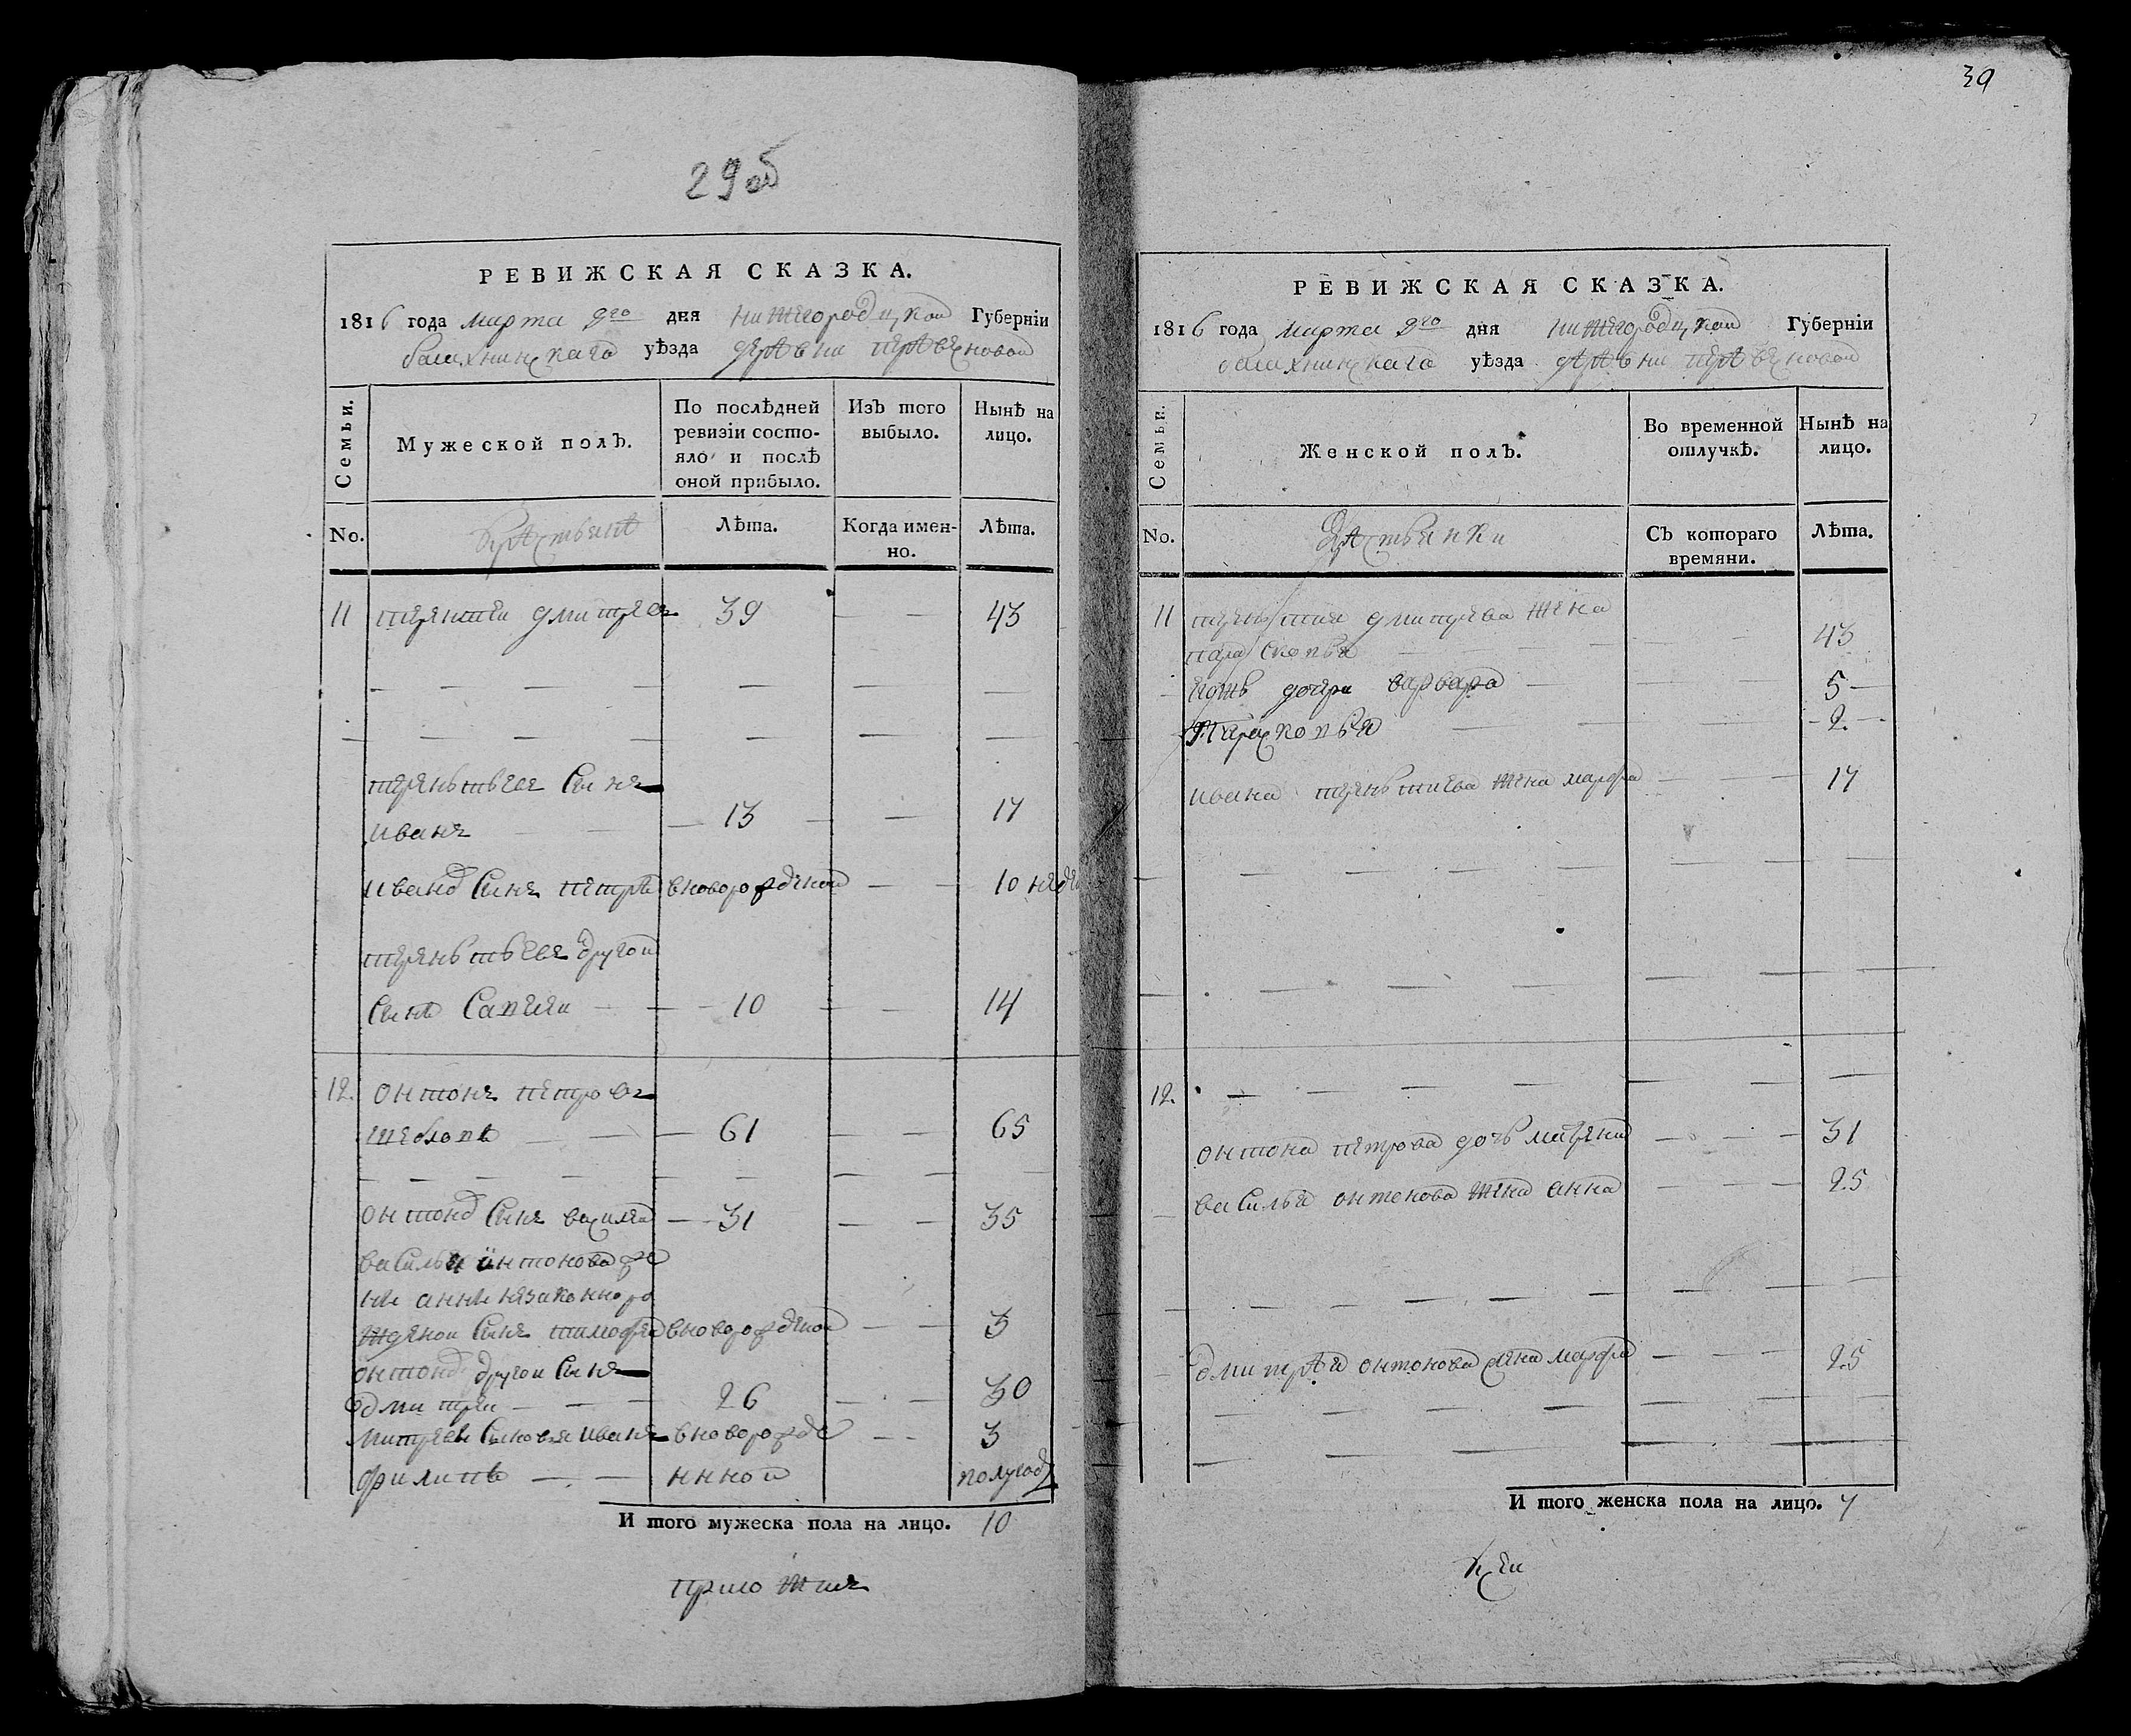 29 об
РЕВИЖСКАЯ СКАЗКА.
1816 года марта 9го дня нижегородцкой Губерніи
балахнинскаго уѣзда деревни
Семьи.
Мужеской полъ.
По послѣдней ревизіи состояло и послѣ оной прибыло.
Изъ того выбыло.
Нынѣ на лицо.
No.
крестьянѣ
Лѣта.
Когда именно.
Лѣта.
11 терентеи дмитреевъ 39 — — 43
терентьевъ сынъ
иванъ — 13 — — 17
ивана сынъ петръ вновророжденой — — 10 недель
терентьевъ другой
сынъ — — 10 — — 14
12. онтонъ петровъ
— — 61 — — 65
онтона сынъ василей — 31 — — 35
василья онтонова же
не анне незаконноро
жденой сынъ тимофей вноворожденой — — 3
онтона другой сынъ
дмитреи — — 26 — — 30
митреевы сыновья иванъ вноворожде — — 3
филипъ — — нной полугоду
И того мужеска пола на лицо. 10
приложилъ
39
РЕВИЖСКАЯ СКАЗКА.
1816 года марта 9го дня нижегородцкой Губерніи
балахнинскаго уѣзда деревни
Семьи.
Женской полъ.
Во временной отлучкѣ.
Нынѣ на лицо.
No.
крестьянки
Съ котораго времяни.
Лѣта.
11 терентия дмитрева жена
парасковья — — 43
евожъ дочери варвара — — 5
Парасковья — — 2.
ивана терентиева жена марфа — — 17
12.
онтона петрова дочь матрена — — 31
василья онтонова жена анна — — 25
дмитрея онтонова жена марфа — — 25
И того женска пола на лицо. 7